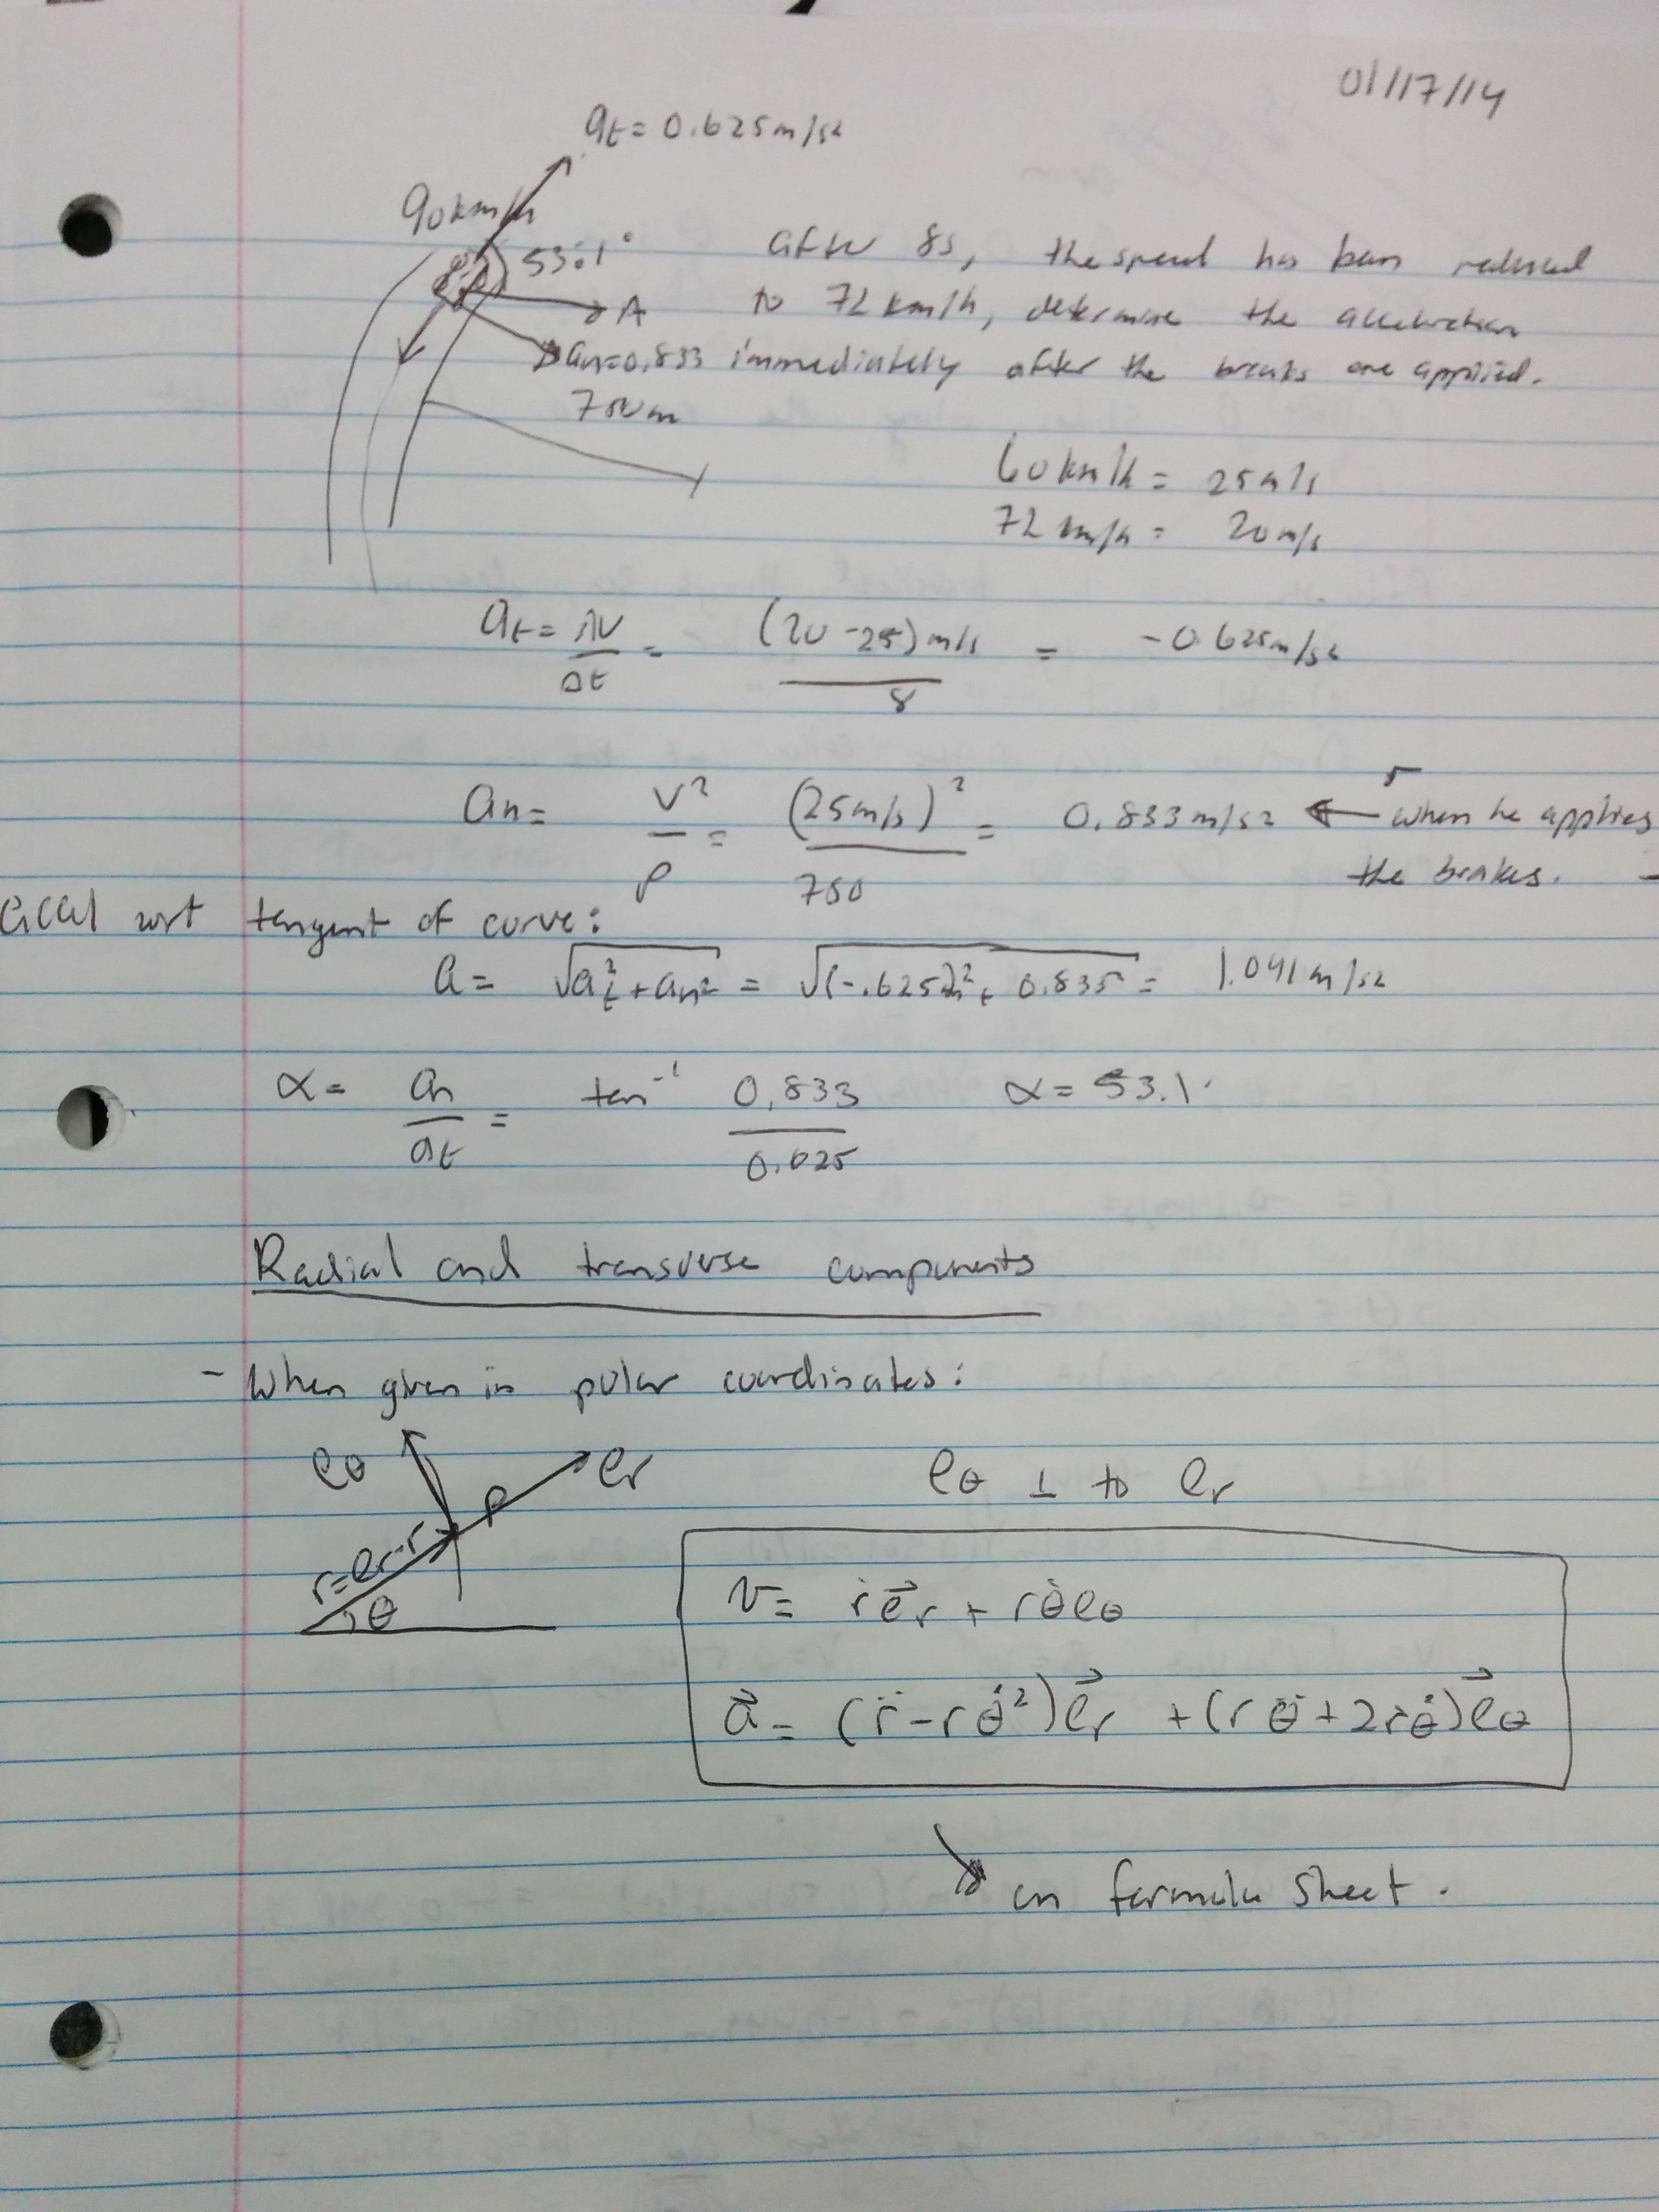 01/17/14
at = 0.625m/s²
90km/h
53.1°
A
an=0.833
750m
after 8s, the speed has been reduced
to 72 km/h, determine the acceleration
immediately after the breaks are applied.
60km/h = 25m/s
72 km/h = 20m/s
at = ΔV/Δt = (20-25)m/s / 8 = -0.625m/s²
an = v²/ρ = (25m/s)²/750 = 0.833m/s² ← when he applies
the brakes.
accel wrt tangent of curve:
a = √(at² + an²) = √((-.625)² + 0.835 = 1.041m/s²
α = an/at = tan⁻¹ 0.833/0.625 α = 53.1°
Radial and transverse components
- When given in polar coordinates:
eθ
er
P
r=er·r
θ
eθ ⊥ to er
v = ṙe⃗r + rθ̇eθ
a⃗ = (r̈ - rθ̇²)e⃗r + (rθ̈ + 2ṙθ̇)e⃗θ
on formula sheet.